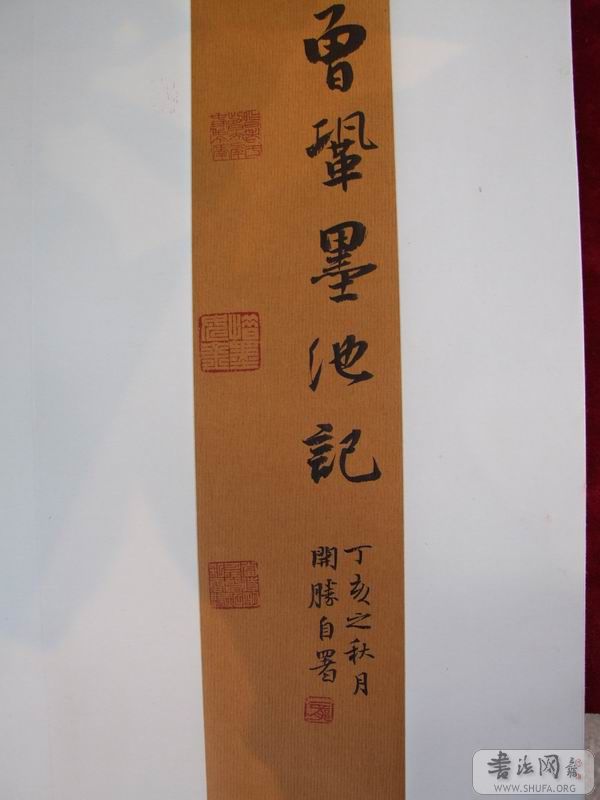 曾鞏墨池記
丁亥之秋月
開勝自署
書法网
WWW.SHUFA.ORG